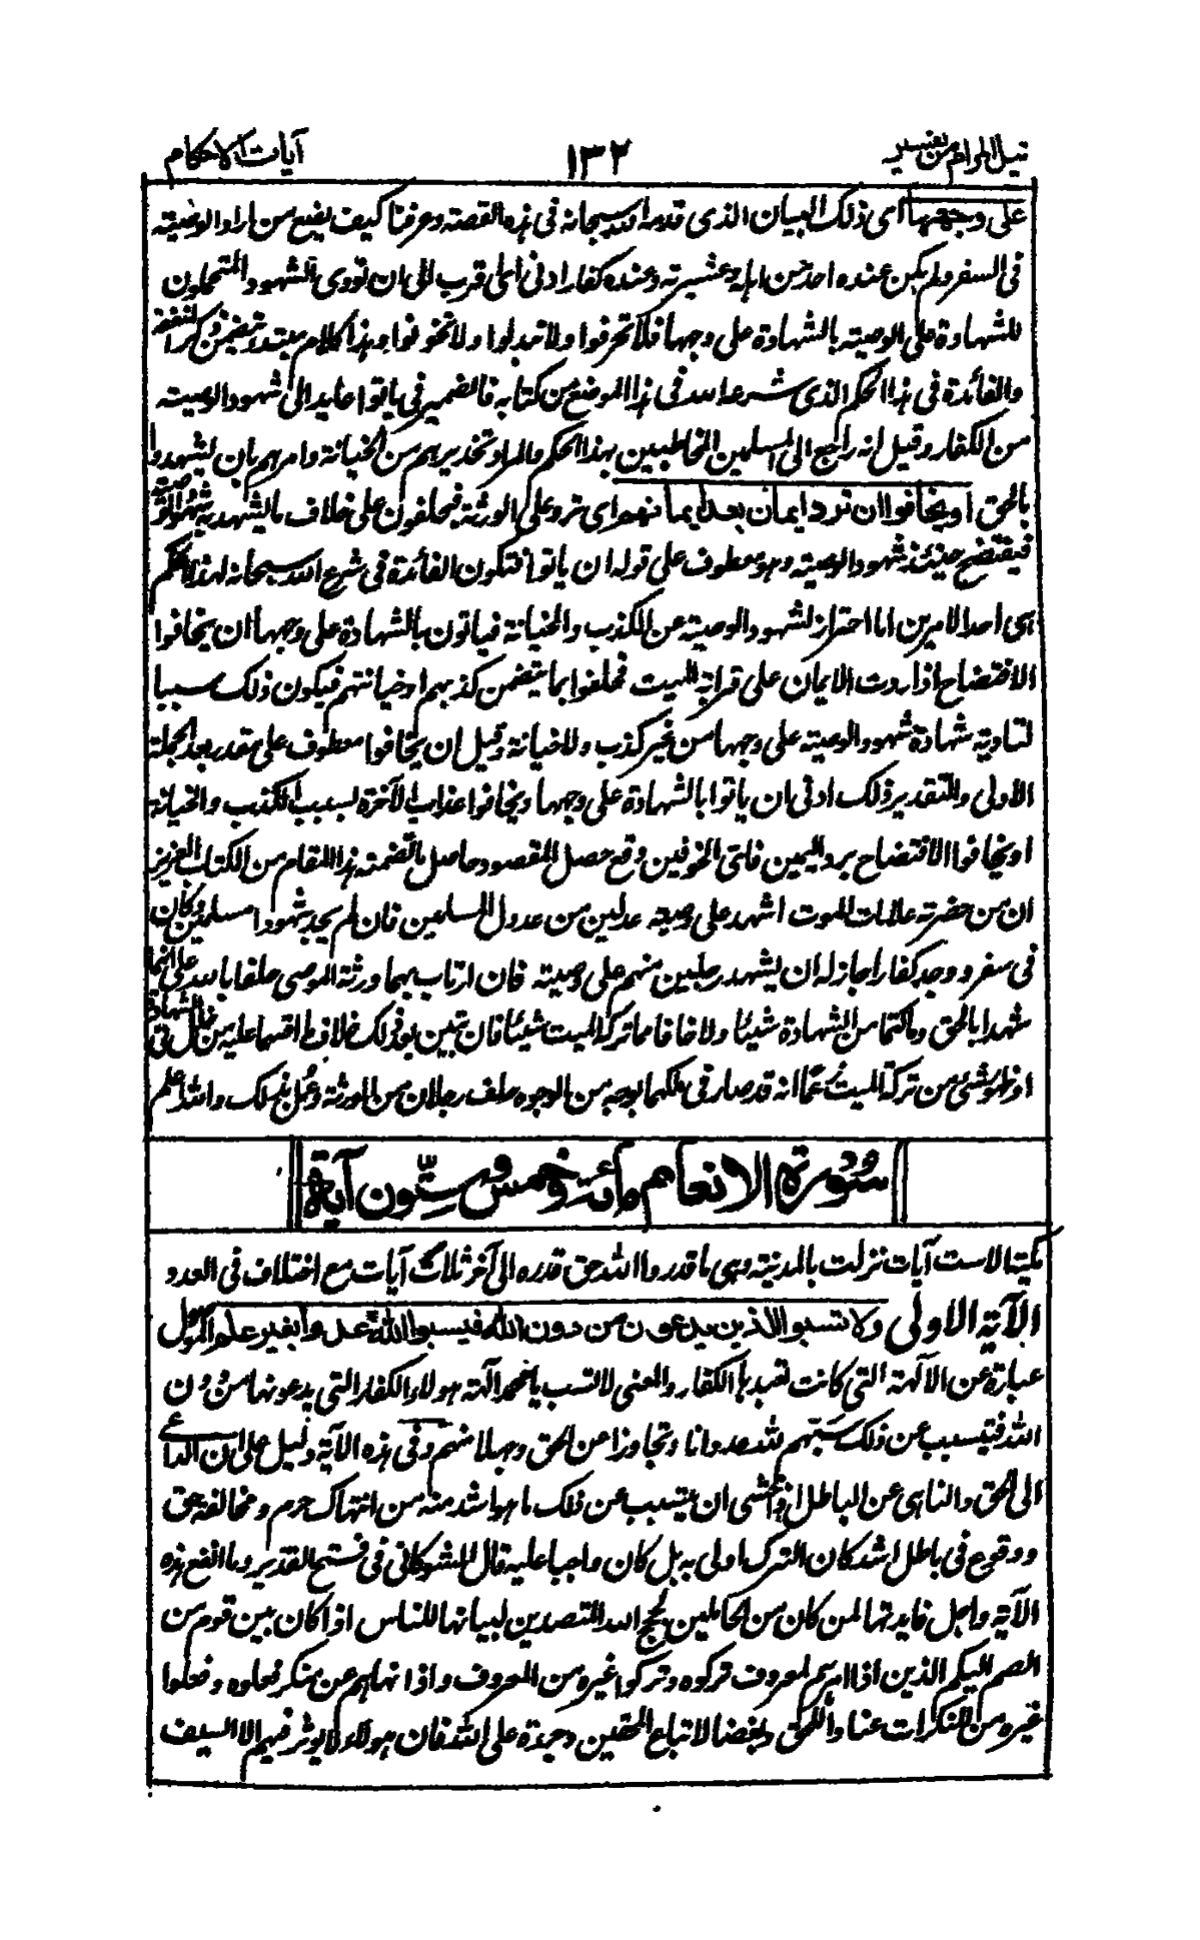 نيل المرام من تفسير ١٣٢ آيات الاحكام
على وجهها اى ذلك البيان الذى قدمه الله سبحانه فى هذه القصة وعرفنا كيف يصنع من اراد الوصية
فى السفر ولم يكن عنده احد من اهله وعشيرته وعنده كفار ادنى اى اقرب الى ان تؤدى الشهود المتحملون
للشهادة على الوصية بالشهادة على وجهها فلا تحرفوا ولا تبدلوا ولا تخونوا وهذا كلام مبتدء يتضمن ذكر المنفعة
والفائدة فى هذا الحكم الذى شرعه الله فى هذا الموضع من كتابه فالضمير فى ياتوا عايد الى شهود الوصية
من الكفار وقيل انه راجع الى المسلمين المخاطبين بهذا الحكم والمراد تحذيرهم من الخيانة وامرهم بان يشهدوا
بالحق او يخافوا ان ترد ايمان بعد ايمانهم اى ترد على الورثة فيحلفون على خلاف ما شهد به شهود الوصية
فيفتضح حينئذ شهود الوصية وهو معطوف على قوله ان ياتوا فتكون الفائدة فى شرع الله سبحانه لهذا الحكم
هى احد الامرين اما احتراز شهود الوصية عن الكذب والخيانة فياتون بالشهادة على وجهها او يخافوا
الافتضاح اذا ردت الايمان على قرابة الميت فحلفوا بما يتضمن كذبهم او خيانتهم فيكون ذلك سببا
لتادية شهادة شهود الوصية على وجهها من غير كذب ولا خيانة وقيل ان يخافوا معطوف على مقدر بعد الجملة
الاولى والتقدير ذلك ادنى ان ياتوا بالشهادة على وجهها ويخافوا عذاب الآخرة بسبب الكذب والخيانة
او يخافوا الافتضاح برد اليمين فاى الخوفين وقع حصل المقصود وحاصل ما تضمنه هذا المقام من الكتاب العزيز
ان من حضرته علامات الموت اشهد على وصيته عدلين من عدول المسلمين فان لم يجد شهودا مسلمين وكان
فى سفر ووجد كفارا جاز له ان يشهد رجلين منهم على وصيته فان ارتاب بهما ورثة الموصى حلفا بالله على انهما
شهدا بالحق وما كتما من الشهادة شيئا ولا خانا مما ترك الميت شيئا فان تبين بعد ذلك خلاف ما اقسما عليه من خلل فى الشهادة
او ظهور شئ من تركة الميت زعما انه قد صار فى ملكهما بوجه من الوجوه حلف رجلان من الورثة وعمل بذلك والله اعلم
سورة الانعام مائة وخمس وستون آية
مكية الا ست آيات نزلت بالمدينة وهى ما قدروا الله حق قدره الى آخر ثلاث آيات مع اختلاف فى العدد
الآية الاولى ولا تسبوا الذين يدعون من دون الله فيسبوا الله عدوا بغير علم الموصول
عبارة عن الآلهة التى كانت تعبدها الكفار والمعنى لا تسب يا محمد آلهة هولاء الكفار التى يدعونها من دون
الله فيتسبب عن ذلك سبهم لله عدوانا وتجاوزا عن الحق وجهلا منهم وفى هذه الآية دليل على ان الداعى
الى الحق والناهى عن الباطل اذا خشى ان يتسبب عن ذلك ما هو اشد منه من انتهاك حرم ومخالفة حق
ووقوع فى باطل اشد كان الترك اولى به بل كان واجبا عليه قال الشوكانى فى فتح القدير وما انفع هذه
الآية واجل فايدتها لمن كان من الحاملين لحجج الله المتصدين لبيانها للناس اذا كان بين قوم من
الصم البكم الذين اذا امرهم لمعروف تركوه وتركوا غيره من المعروف واذا نهاهم عن منكر فعلوه وفعلوا
غيره من المنكرات عنادا للحق وبغضا لاتباع المحقين وجرءة على الله فان هولاء لا يوثر فيهم الا السيف